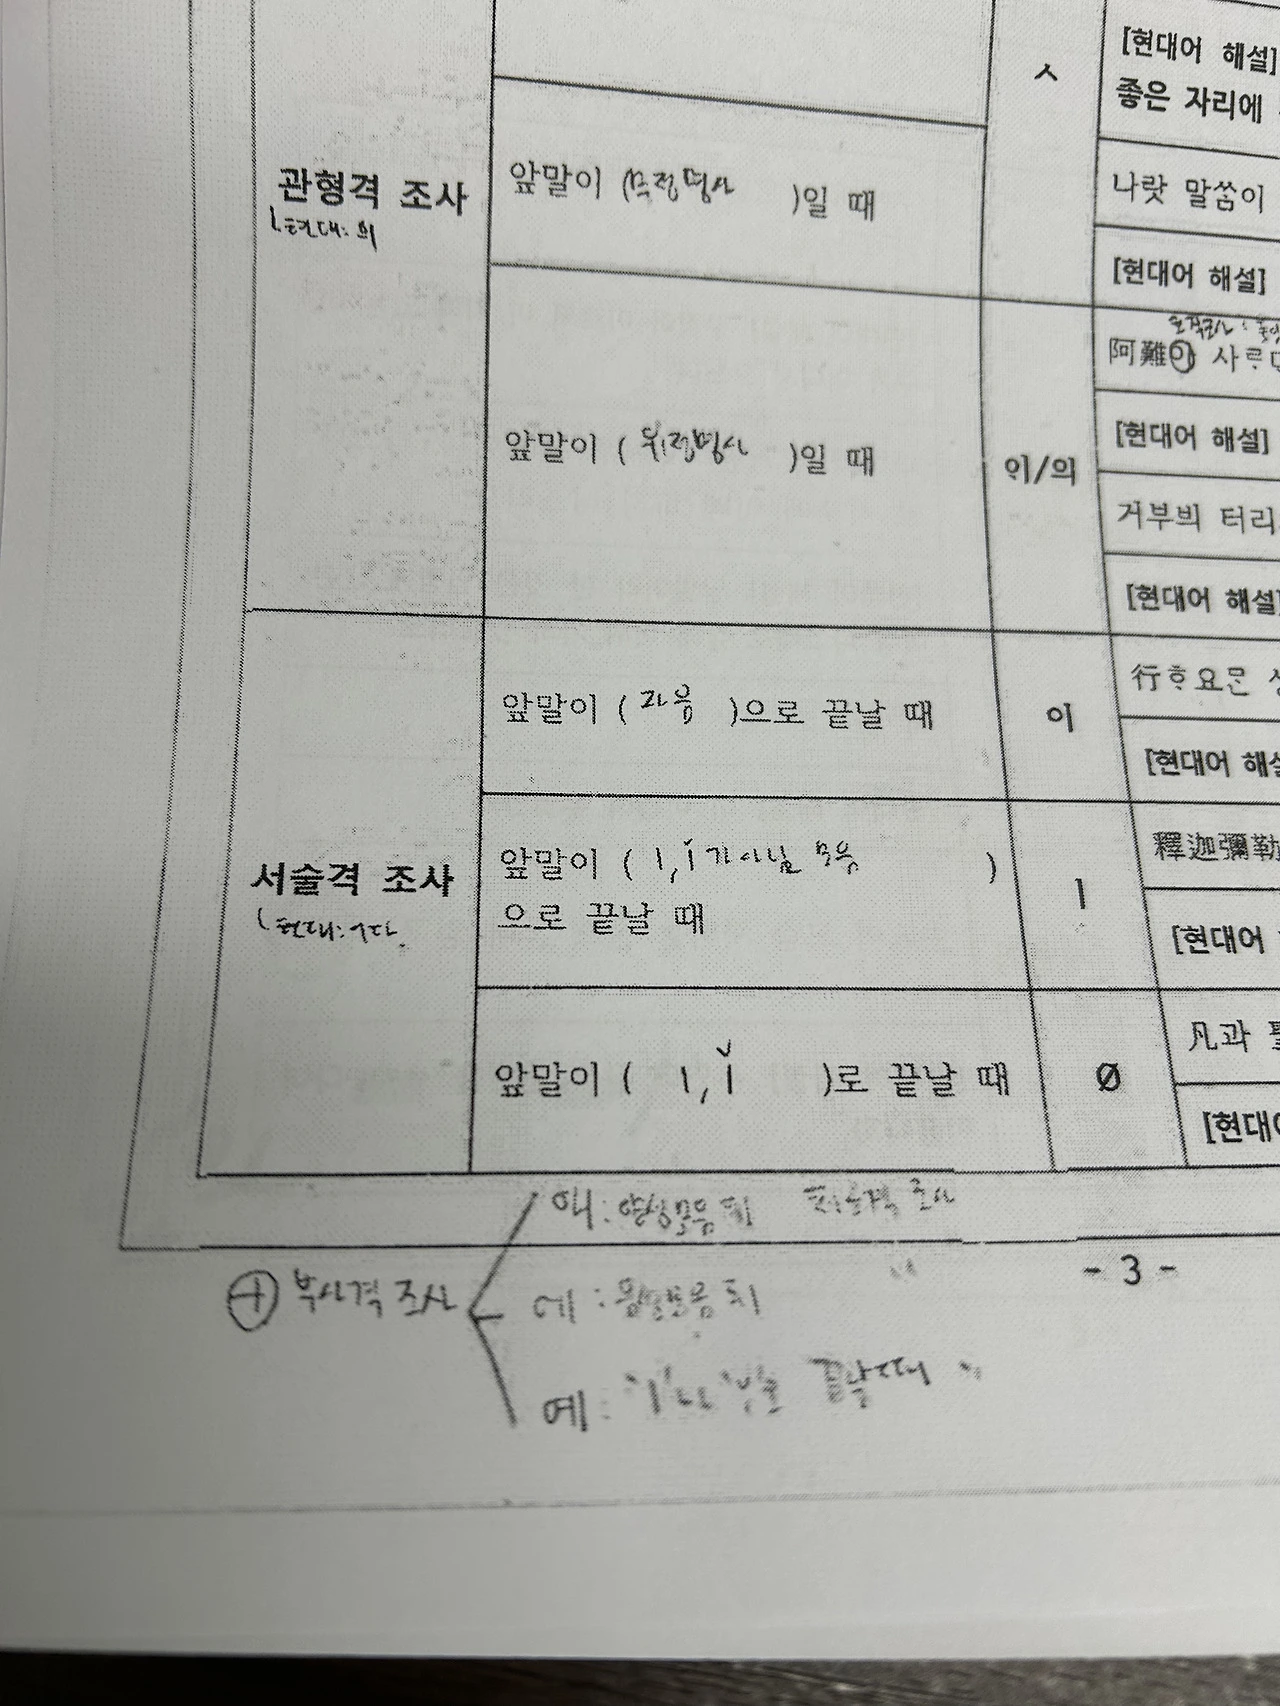 [현대어 해설]
ㅅ
좋은 자리에
관형격 조사
현대: 의
앞말이 (무정명사 )일 때
나랏 말쏨이
[현대어 해설]
阿難이 사ᄅᆞ
[현대어 해설]
앞말이 ( 유정명사 )일 때
ᄋᆡ/의
거부븨 터리
[현대어 해설]
行ᄒᆞ요ᄆᆞᆫ
앞말이 ( 자음 )으로 끝날 때
이
[현대어 해설
釋迦彌勒
앞말이 ( ㅣ, ㅣ가 아닌 모음 )
으로 끝날 때
서술격 조사
현대: 이다
ㅣ
[현대어
凡과
앞말이 ( ㅣ, ㅣ )로 끝날 때
Ø
[현대어
애: 양성모음 뒤
- 3 -
+ 부사격 조사
에: 음성모음 뒤
예: 끝날 때